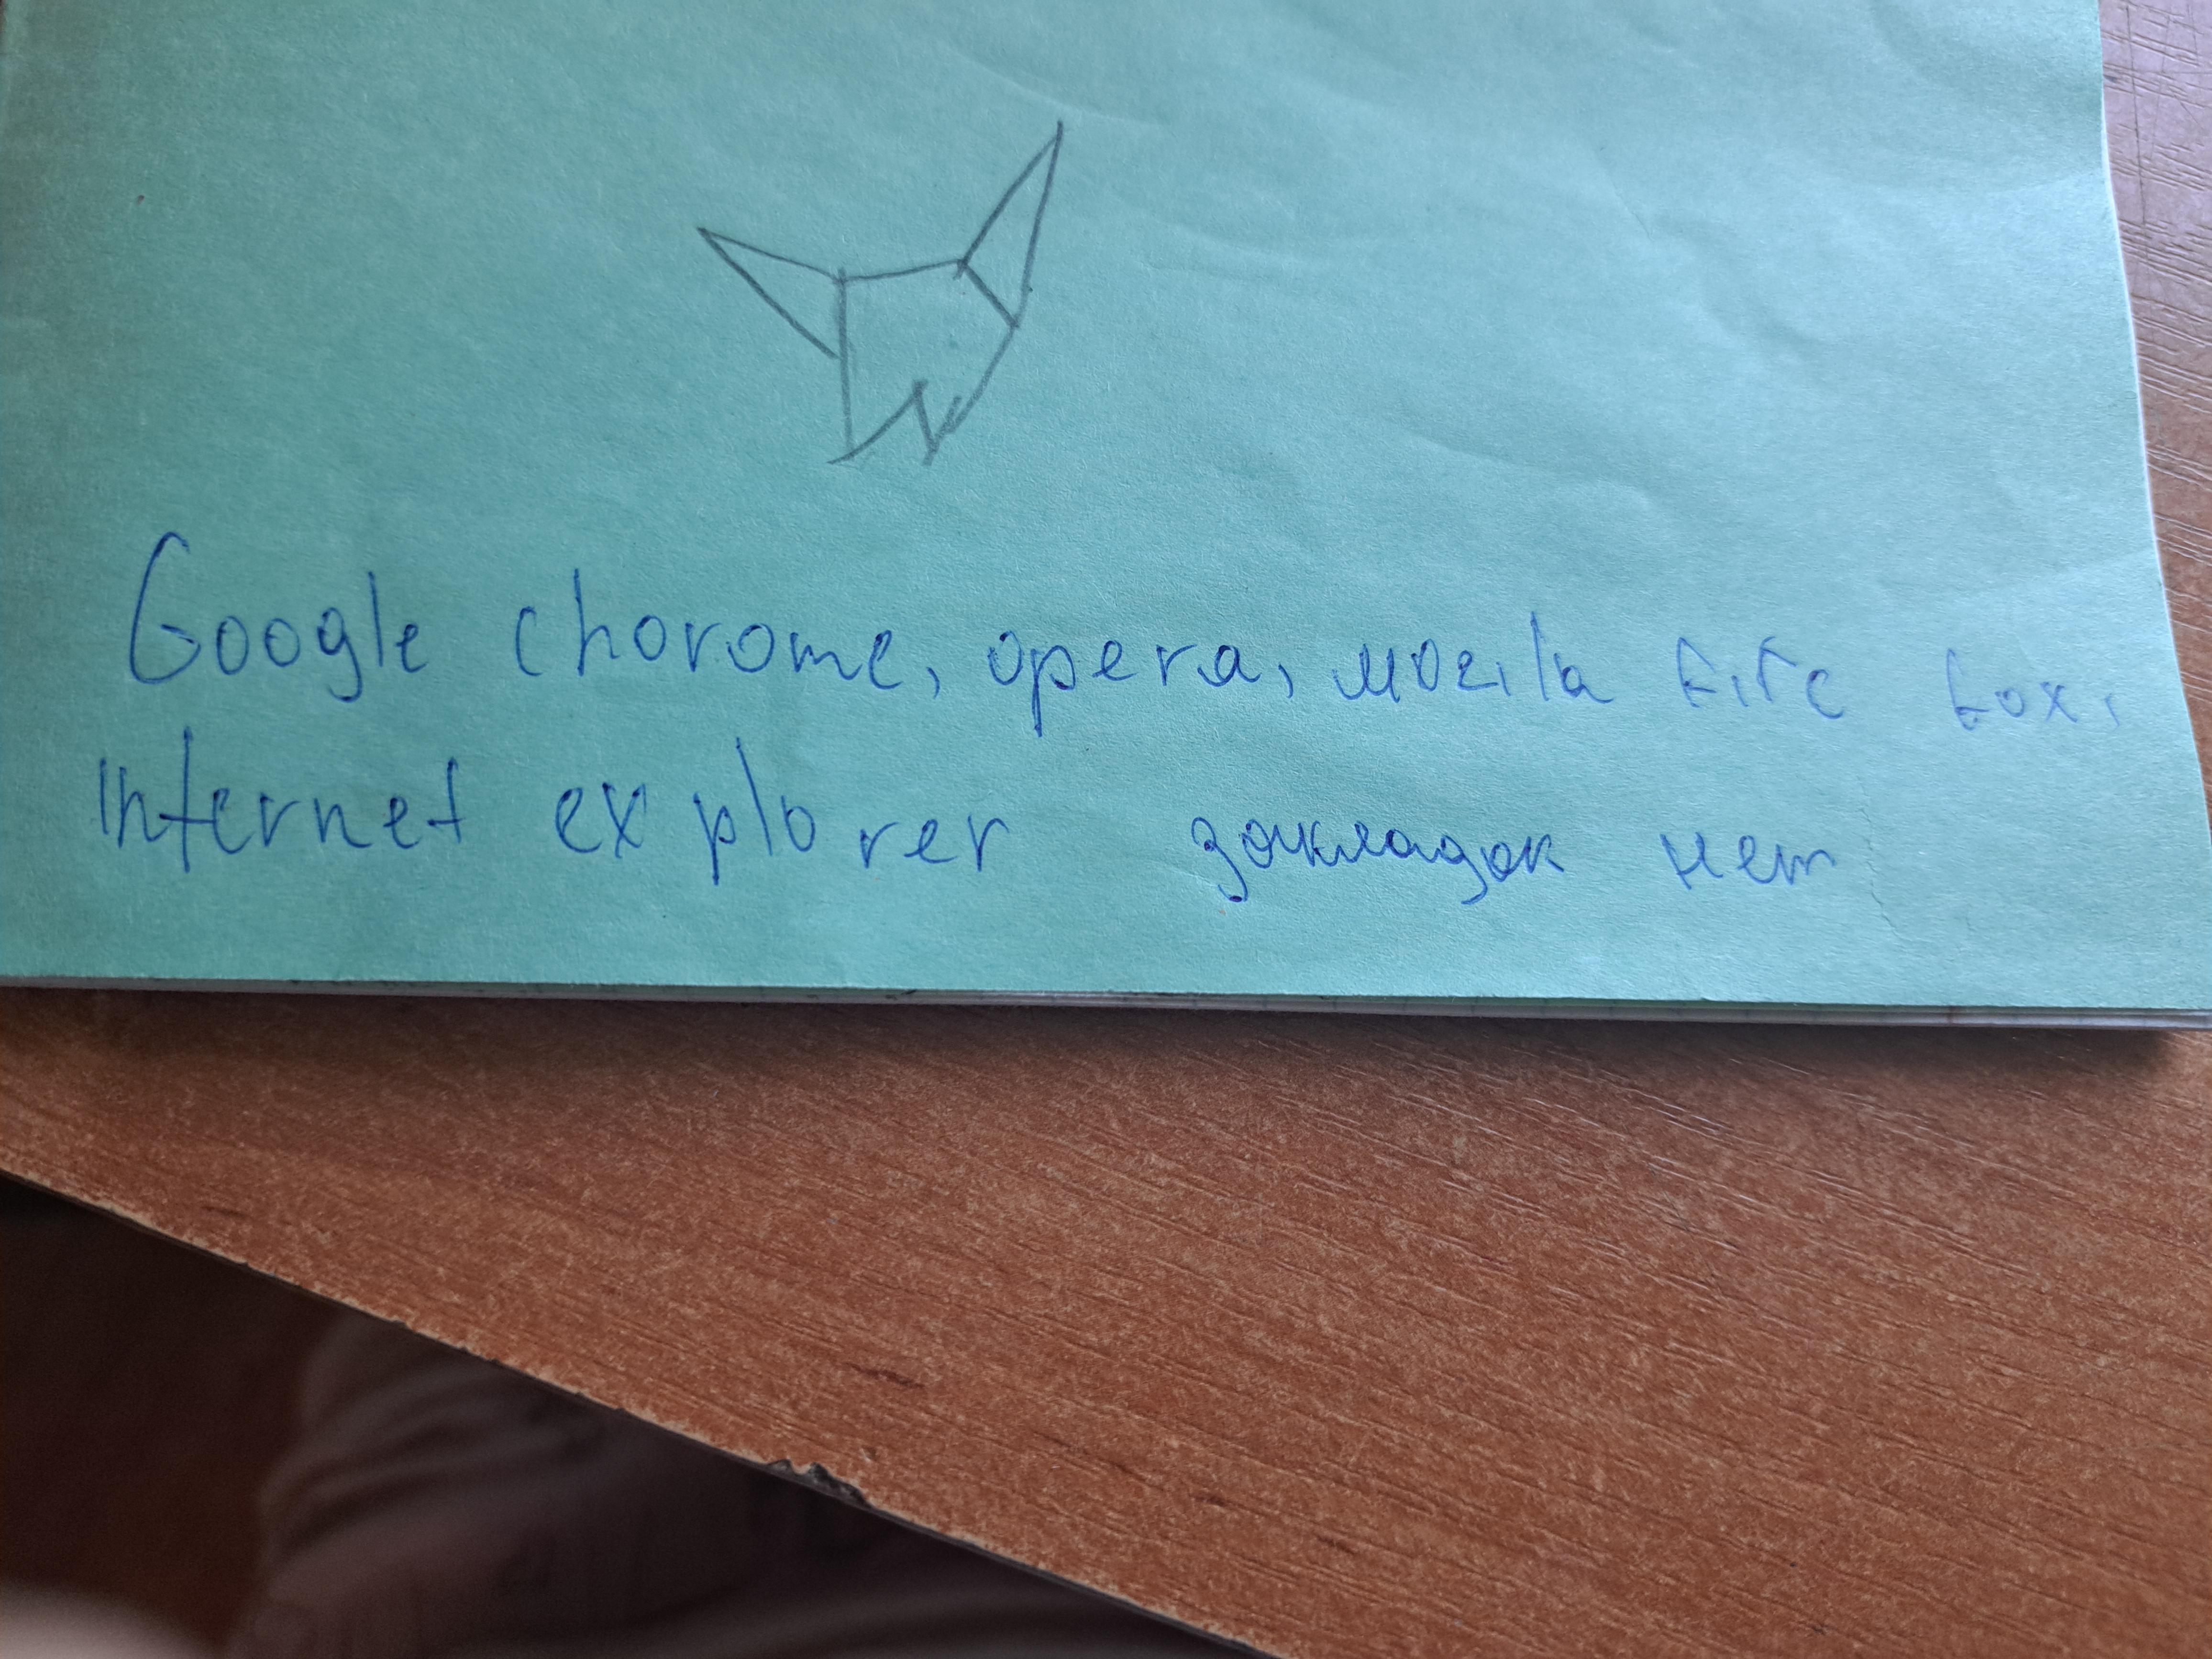 Google chorome, opera, mozila fire fox,
Internet explorer закладок нет